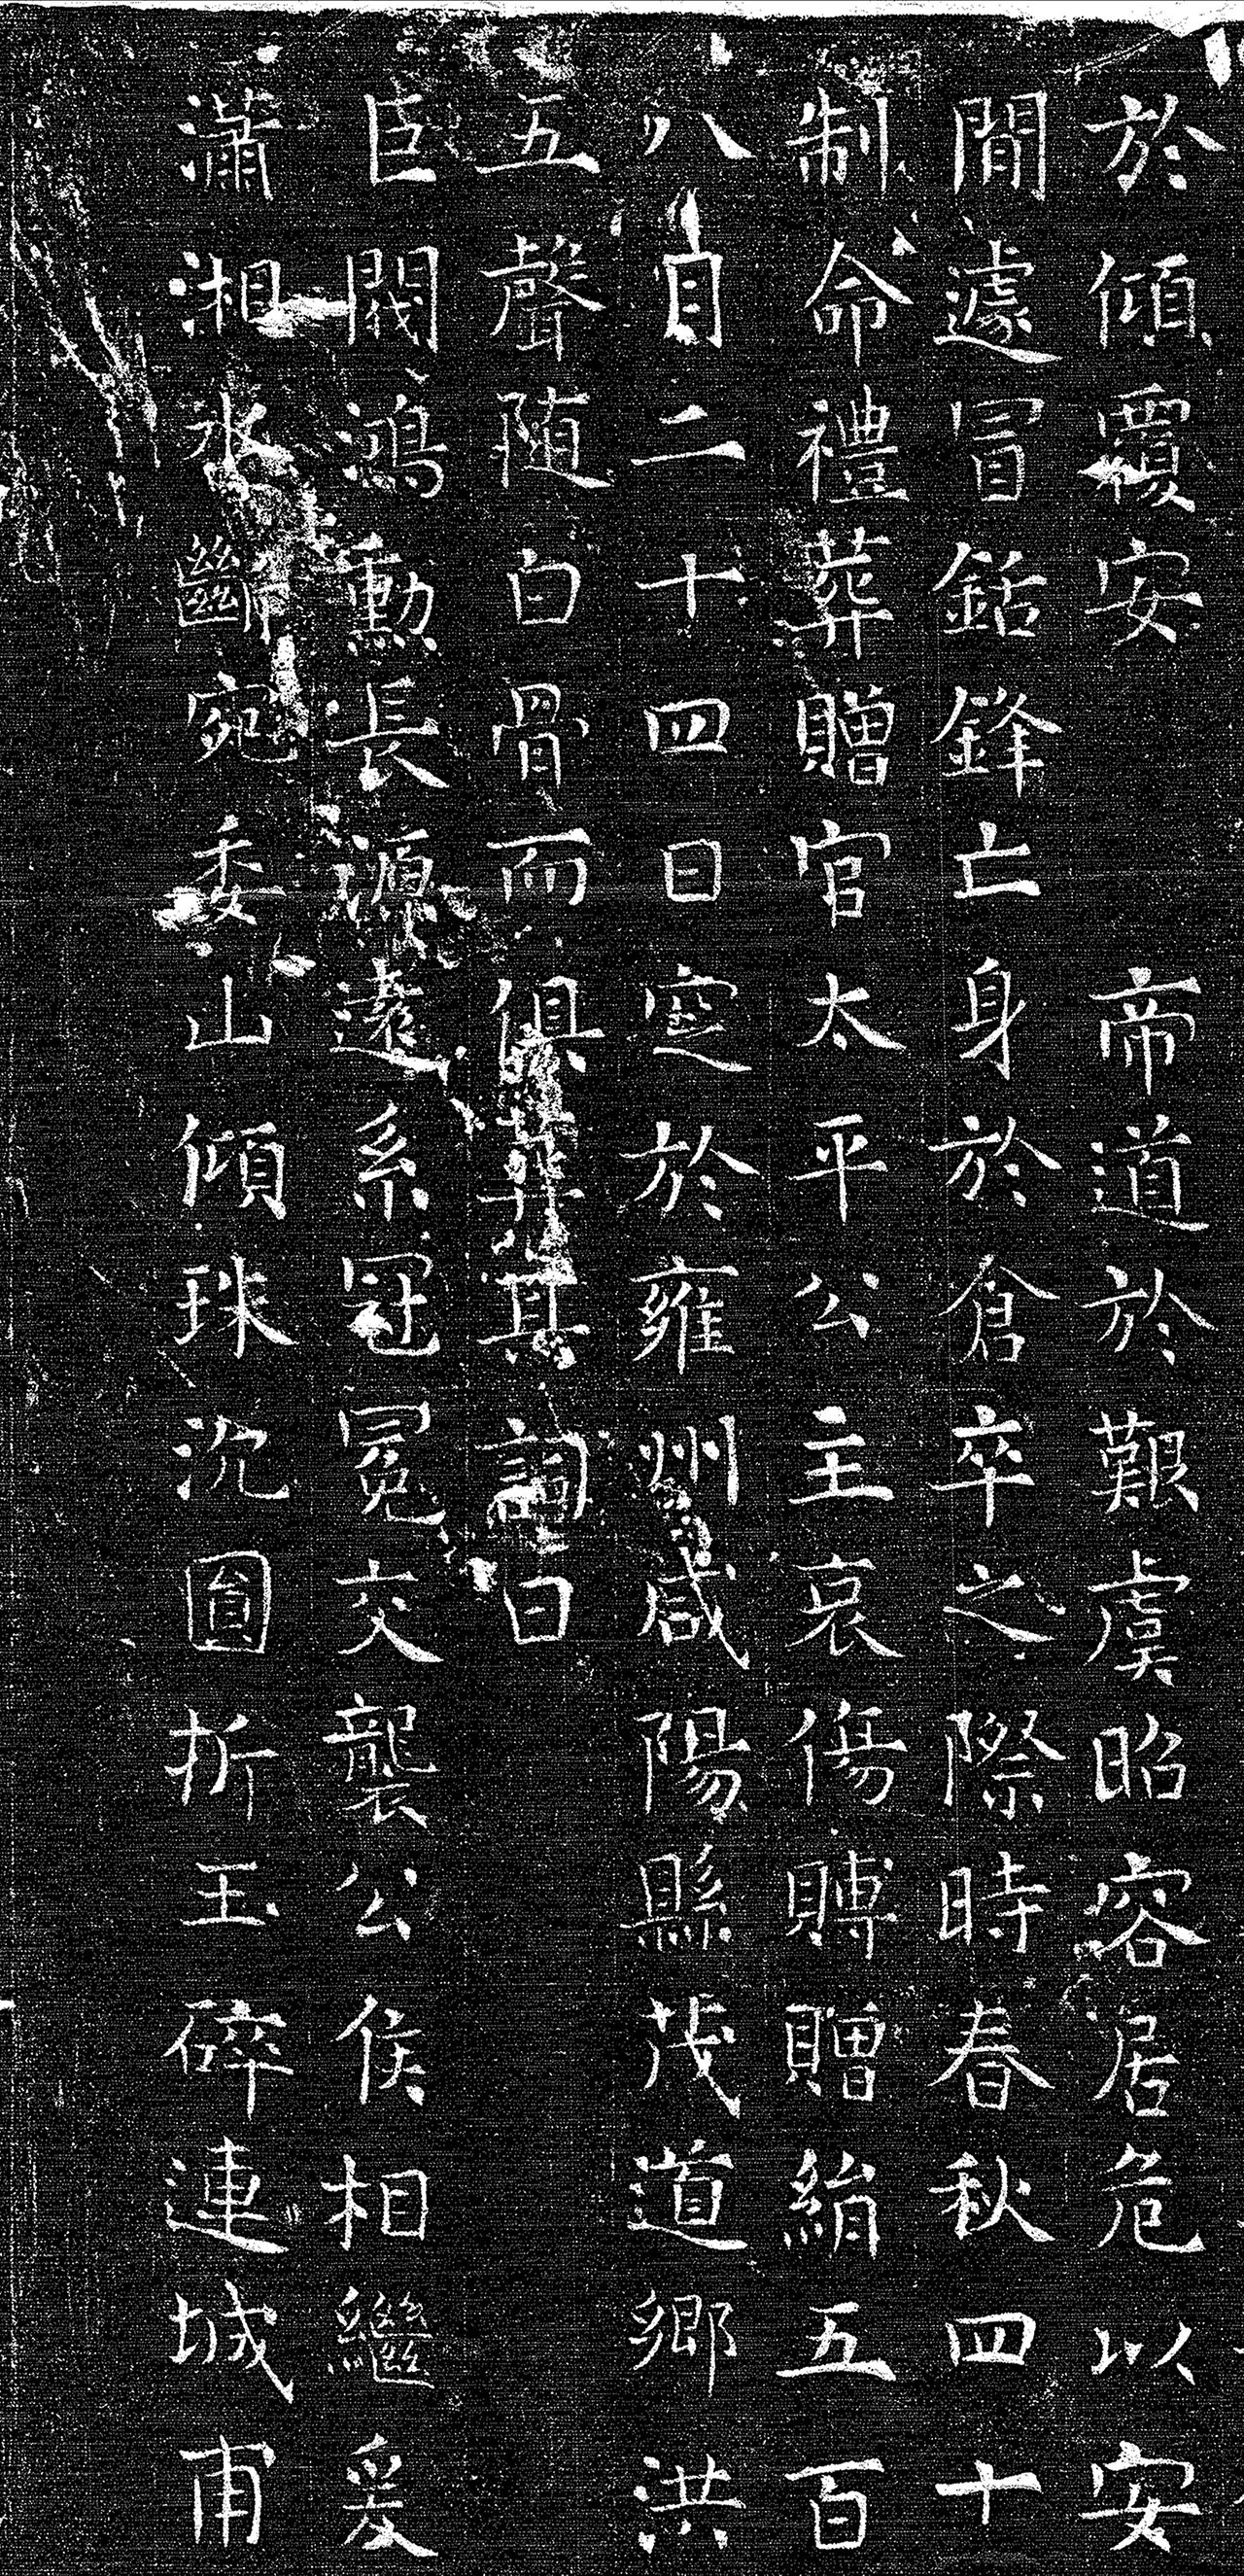 於傾覆安帝道於艱虞昭容居危以安
間遽冒銛鋒亡身於倉卒之際時春秋四十
制命禮葬贈官太平公主哀傷賻贈絹五百
八月二十四日窆於雍州咸陽縣茂道鄉洪
五聲随白骨而俱葬其詞曰
臣閥鴻勳長源遠系冠冕交襲公侯相繼爰
瀟湘水斷宛委山傾珠沉圓折玉碎連城甫